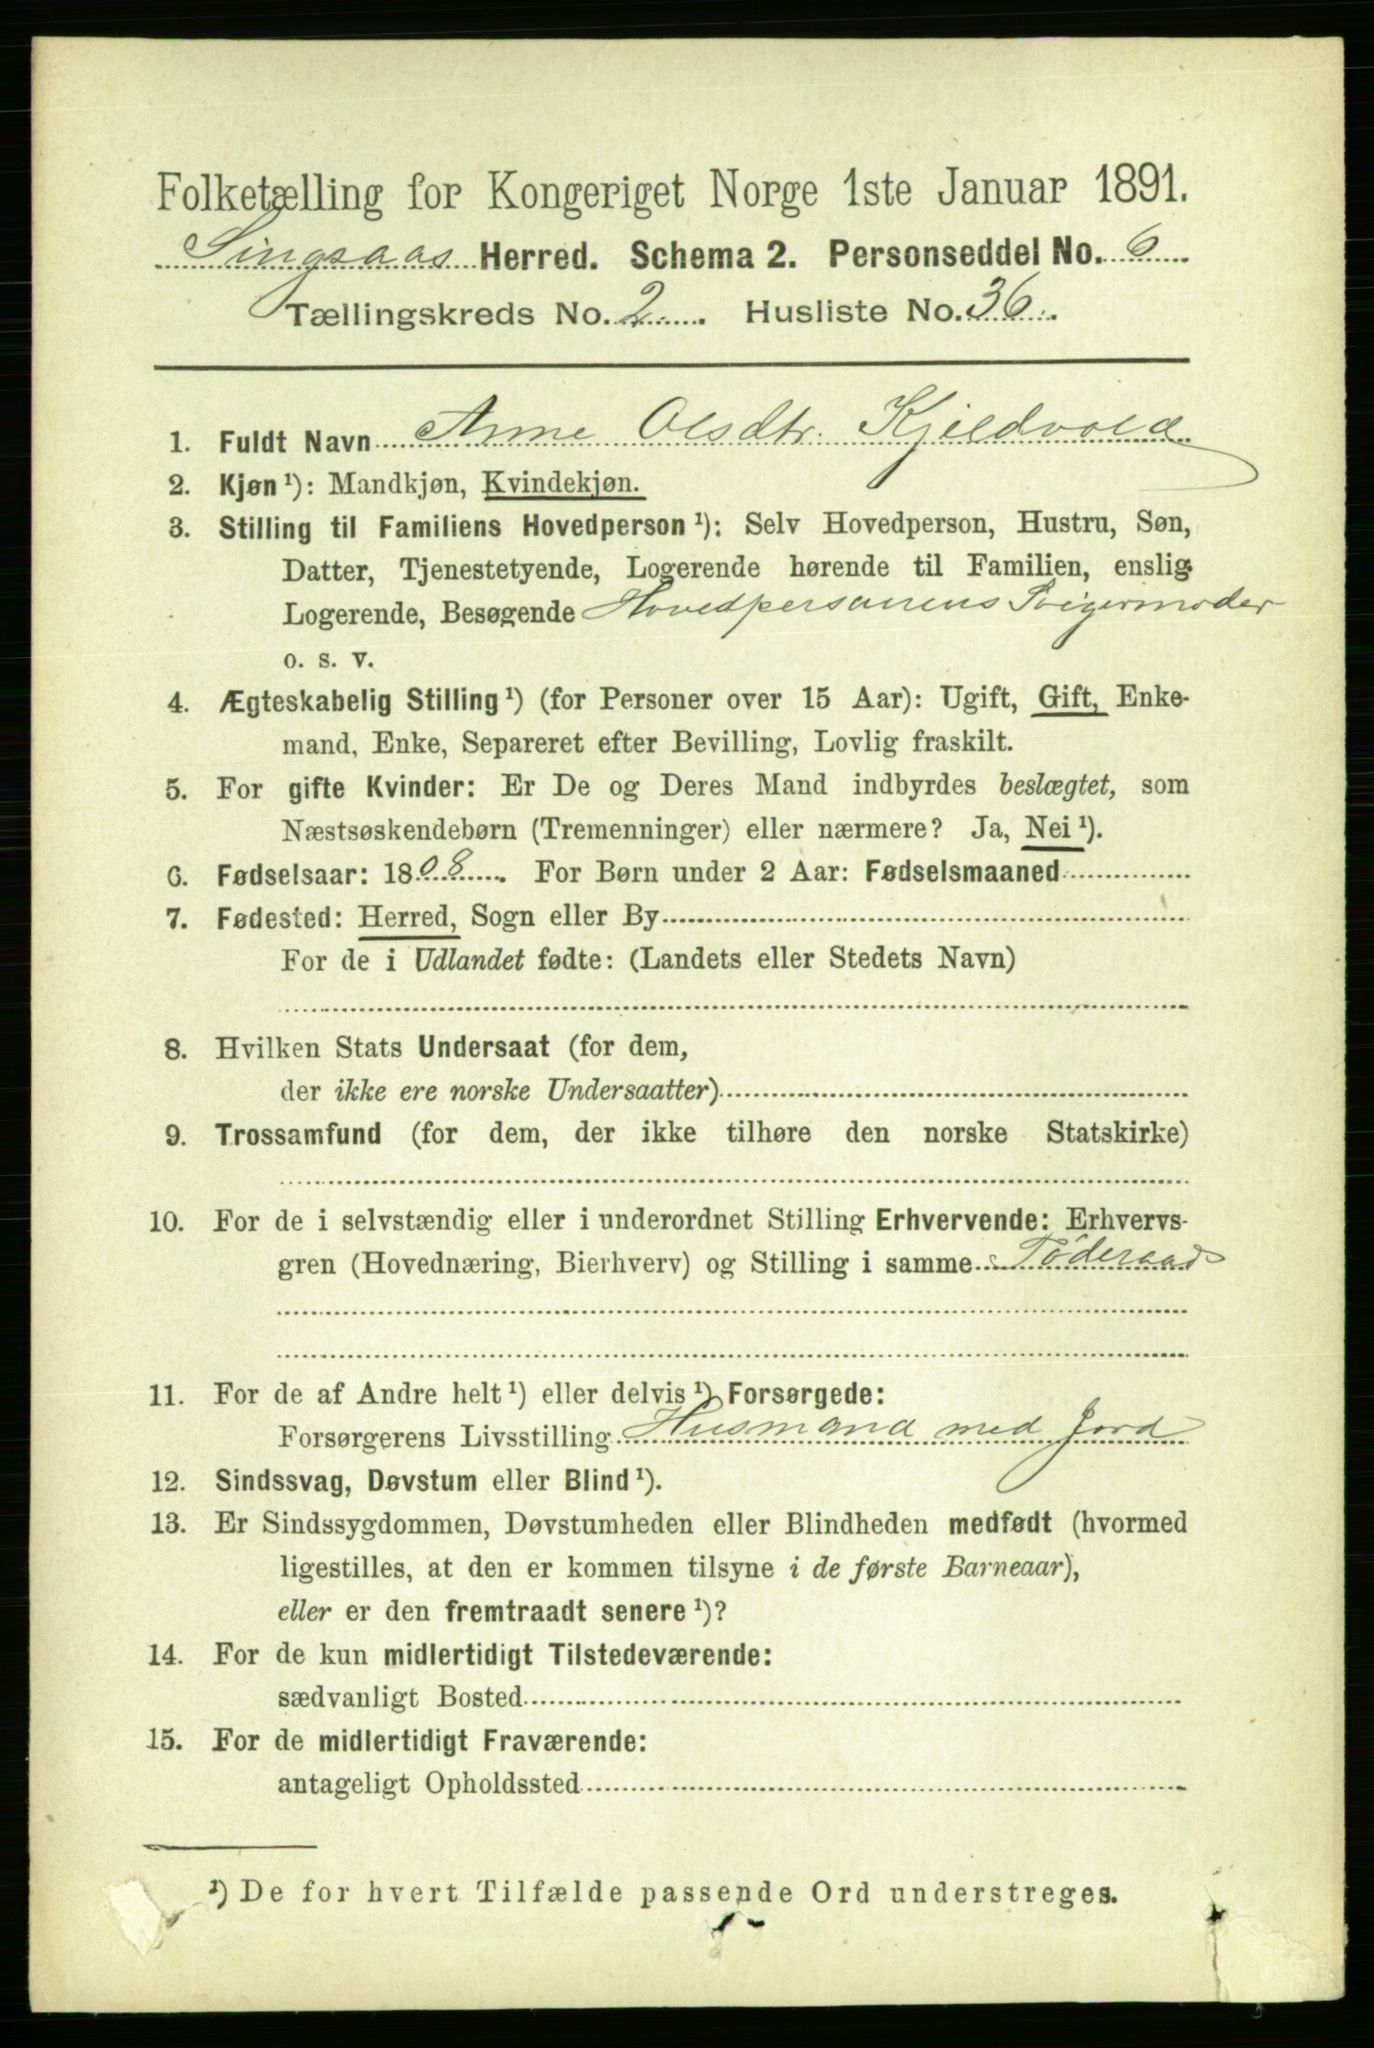 Folketælling for Kongeriget Norge 1ste Januar 1891.
Singsaas Herred. Schema 2. Personseddel No. 6
Tællingskreds No. 2 Husliste No. 36
1. Fuldt Navn Anne Olsdtr. Kjeldvold
2. Kjøn ¹): Mandkjøn, Kvindekjøn.
3. Stilling til Familiens Hovedperson ¹): Selv Hovedperson, Hustru, Søn,
Datter, Tjenestetyende, Logerende hørende til Familien, enslig
Logerende, Besøgende Hovedpersonens Svigermoder
o. s. v.
4. Ægteskabelig Stilling ¹) (for Personer over 15 Aar): Ugift, Gift, Enke-
mand, Enke, Separeret efter Bevilling, Lovlig fraskilt.
5. For gifte Kvinder: Er De og Deres Mand indbyrdes beslægtet, som
Næstsøskendebørn (Tremenninger) eller nærmere? Ja, Nei ¹).
6. Fødselsaar: 1808 For Børn under 2 Aar: Fødselsmaaned
7. Fødested: Herred, Sogn eller By
For de i Udlandet fødte: (Landets eller Stedets Navn)
8. Hvilken Stats Undersaat (for dem,
der ikke ere norske Undersaatter)
9. Trossamfund (for dem, der ikke tilhøre den norske Statskirke)
10. For de i selvstændig eller i underordnet Stilling Erhvervende: Erhvervs-
gren (Hovednæring, Bierhverv) og Stilling i samme Föderaad
11. For de af Andre helt ¹) eller delvis ¹) Forsørgede:
Forsørgerens Livsstilling Husmand med Jord
12. Sindssvag, Døvstum eller Blind ¹).
13. Er Sindssygdommen, Døvstumheden eller Blindheden medfødt (hvormed
ligestilles, at den er kommen tilsyne i de første Barneaar),
eller er den fremtraadt senere ¹)?
14. For de kun midlertidigt Tilstedeværende:
sædvanligt Bosted
15. For de midlertidigt Fraværende:
antageligt Opholdssted
¹) De for hvert Tilfælde passende Ord understreges.